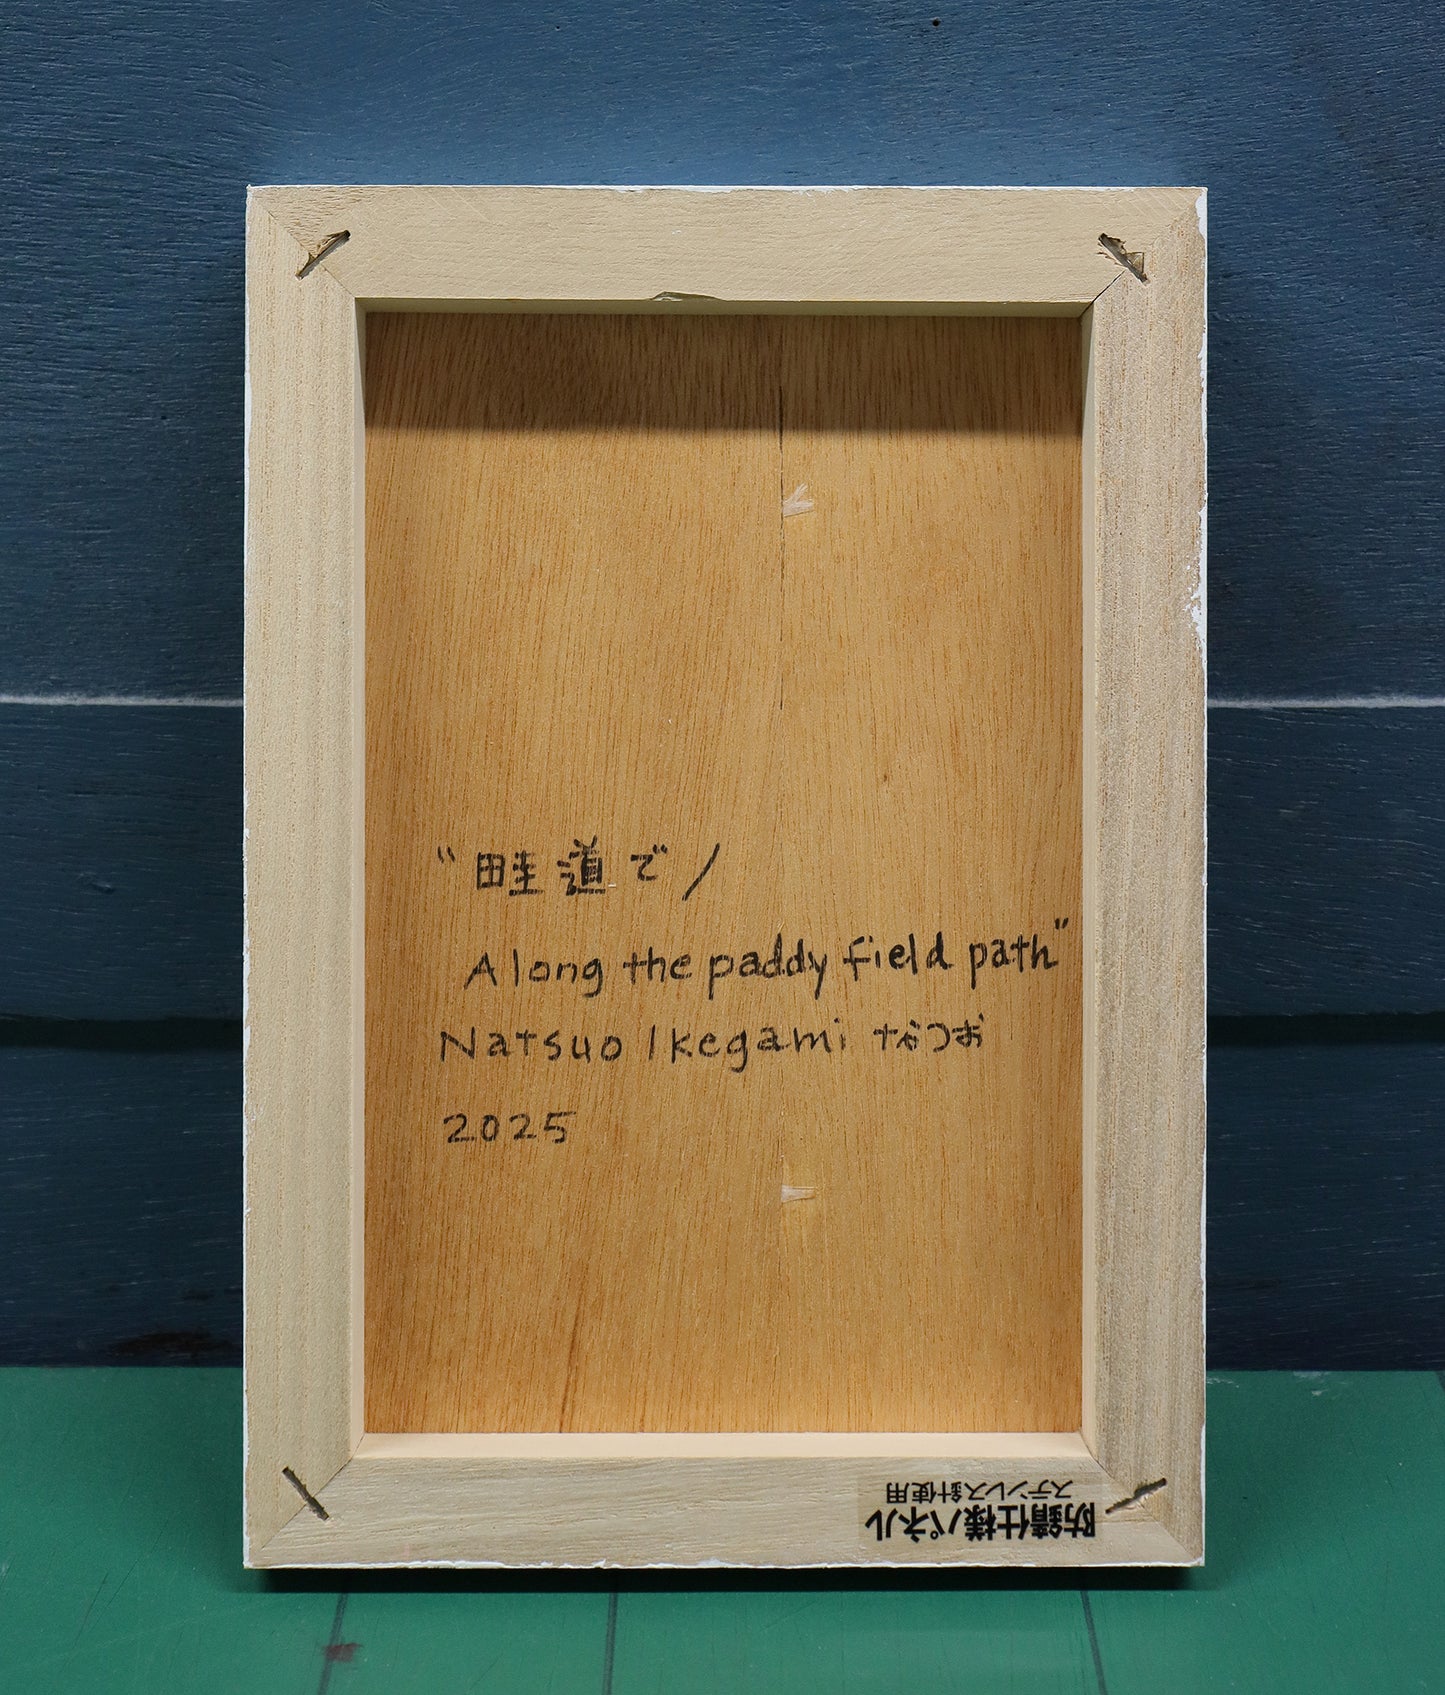 "畦道で/
Along the paddy field path"
Natsuo Ikegami なつお
2025
防錆仕様パネル
ステンレス針使用